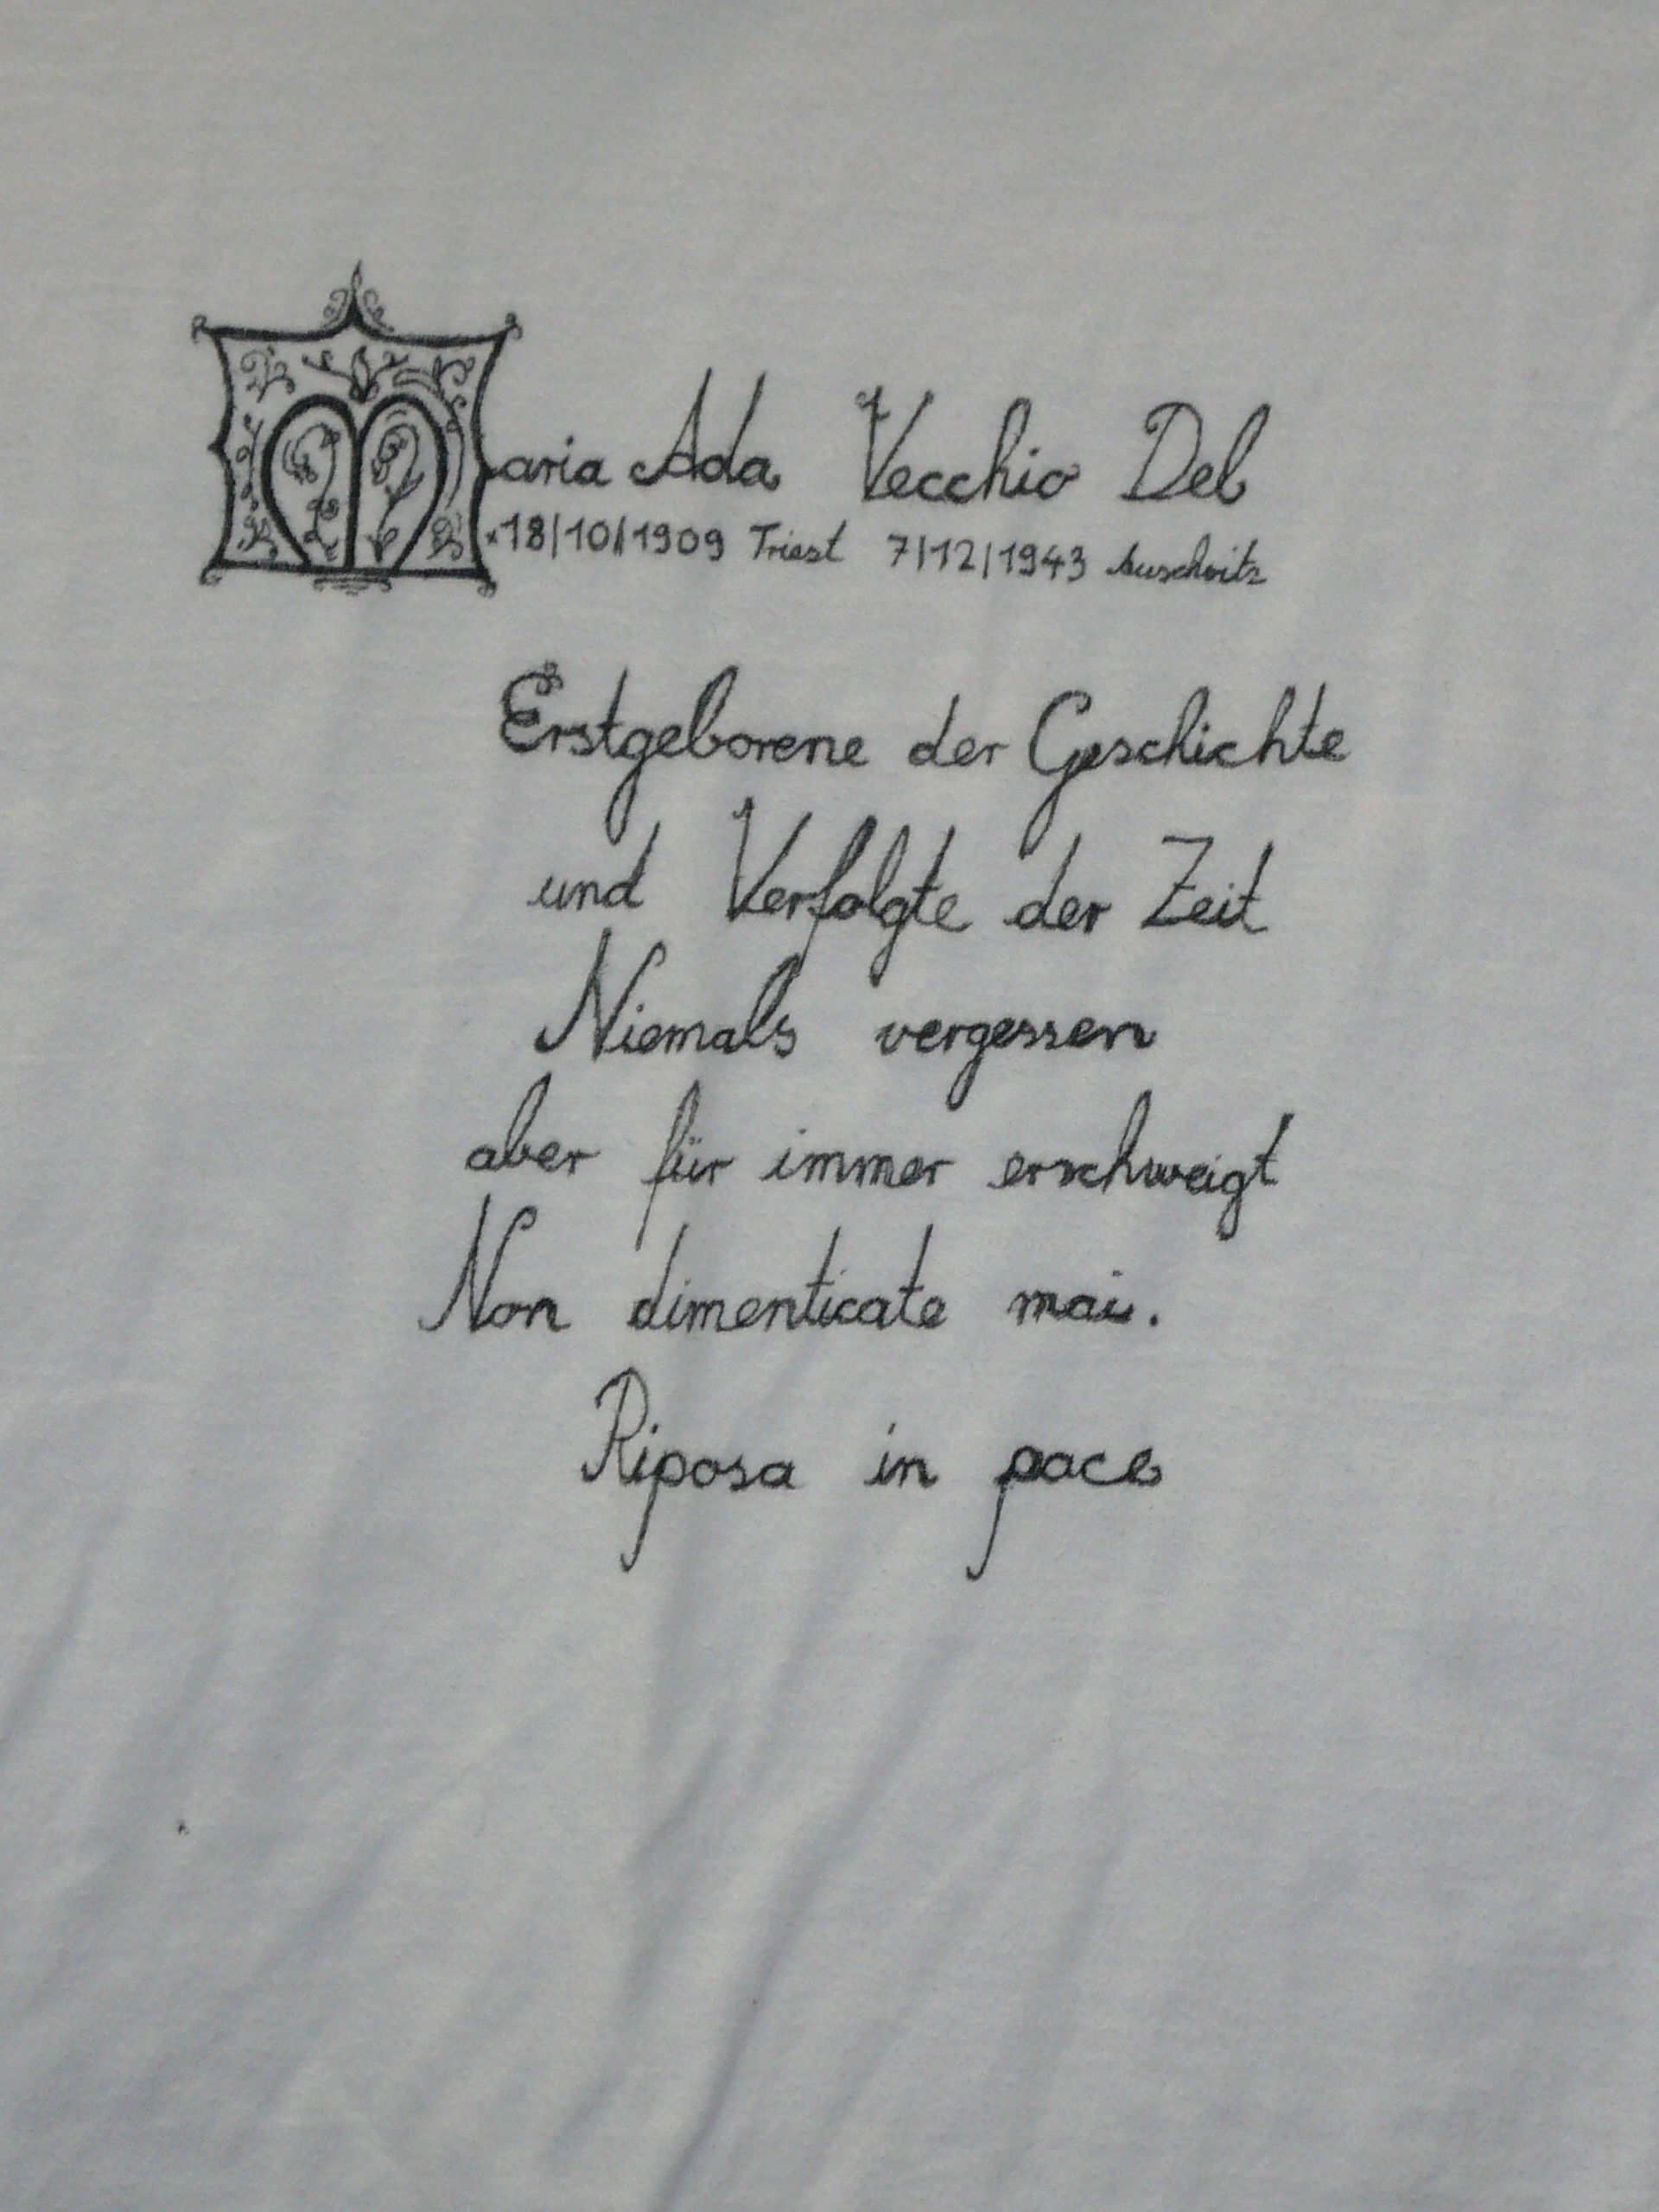 Maria Ada Vecchio Del
*18/10/1909 Triest 7/12/1943 Auschwitz
Erstgeborene der Geschichte
und Verfolgte der Zeit
Niemals vergessen
aber für immer erschweigt
Non dimenticate mai.
Riposa in pace